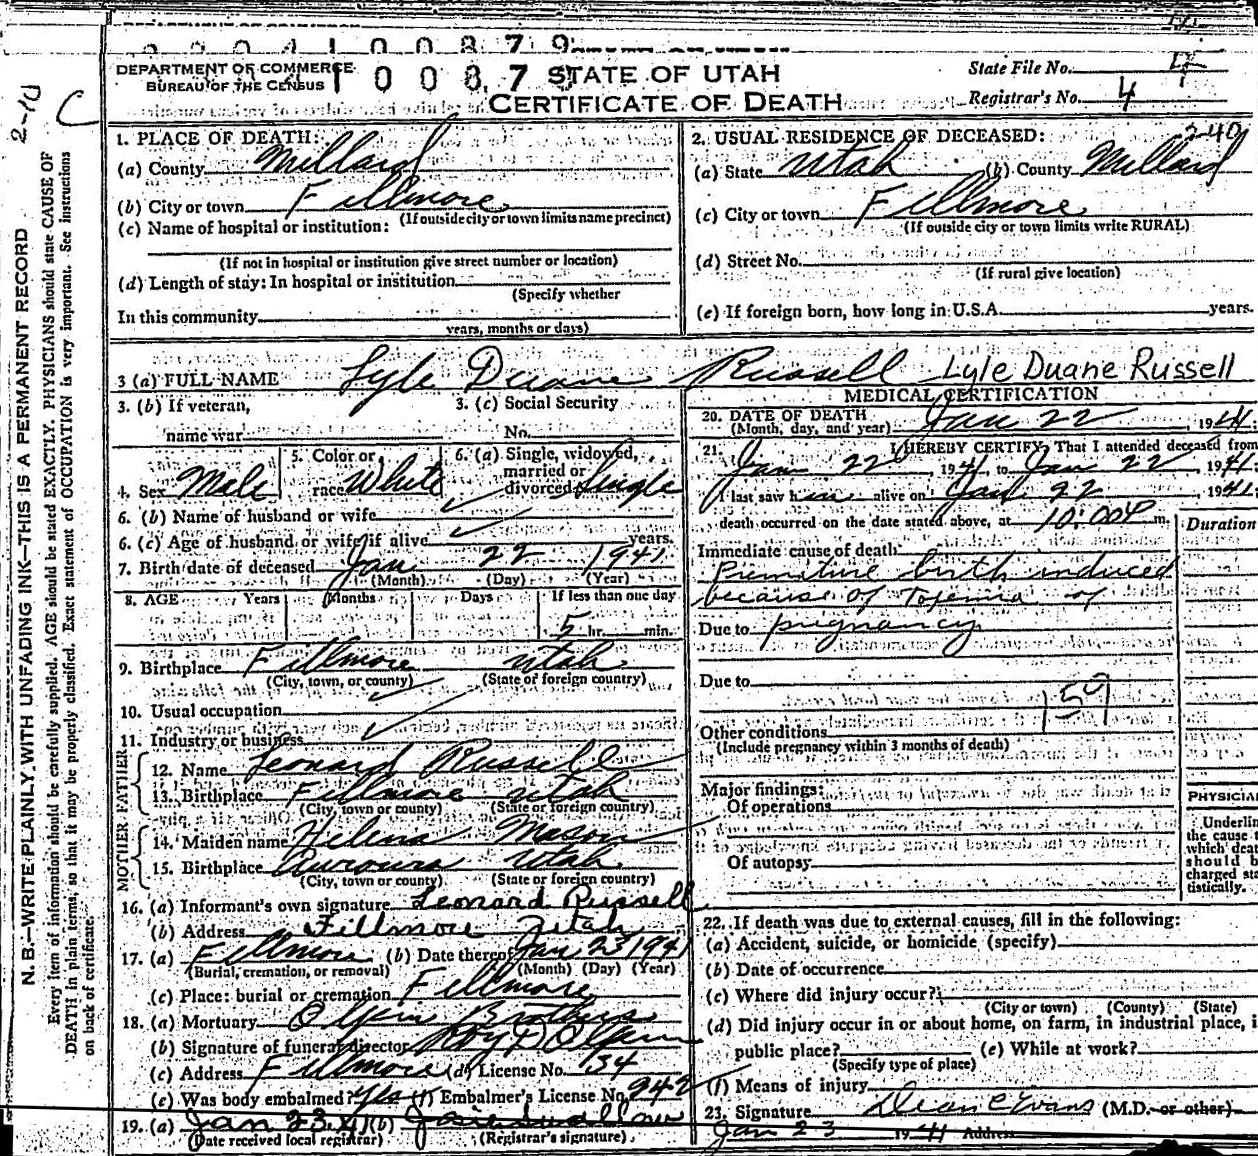 2-40
C
DEPARTMENT OF COMMERCE
BUREAU OF THE CENSUS
STATE OF UTAH
CERTIFICATE OF DEATH
State File No.
Registrar's No. 4
N. B.—WRITE PLAINLY, WITH UNFADING INK—THIS IS A PERMANENT RECORD
Every item of information should be carefully supplied. AGE should be stated EXACTLY. PHYSICIANS should state CAUSE OF
DEATH in plain terms, so that it may be properly classified. Exact statement of OCCUPATION is very important. See instructions
on back of certificate.
1. PLACE OF DEATH:
(a) County Millard
(b) City or town Fillmore
(If outside city or town limits name precinct)
(c) Name of hospital or institution:
(If not in hospital or institution give street number or location)
(d) Length of stay: In hospital or institution
(Specify whether
In this community
years, months or days)
2. USUAL RESIDENCE OF DECEASED: 240
(a) State Utah (b) County Millard
(c) City or town Fillmore
(If outside city or town limits write RURAL)
(d) Street No.
(If rural give location)
(e) If foreign born, how long in U.S.A. years.
3 (a) FULL NAME Lyle Duane Russell Lyle Duane Russell
3. (b) If veteran,
name war
3. (c) Social Security
No.
4. Sex Male
5. Color or
race White
6. (a) Single, widowed,
married or
divorced Single
6. (b) Name of husband or wife
6. (c) Age of husband or wife if alive years.
7. Birth date of deceased Jan 22 1941
(Month) (Day) (Year)
8. AGE Years Months Days If less than one day
5 hr. min.
9. Birthplace Fillmore Utah
(City, town, or county) (State or foreign country)
10. Usual occupation
11. Industry or business
FATHER
12. Name Leonard Russell
13. Birthplace Fillmore Utah
(City, town or county) (State or foreign country)
MOTHER
14. Maiden name Helena Mason
15. Birthplace Auroura Utah
(City, town or county) (State or foreign country)
16. (a) Informant's own signature Leonard Russell
(b) Address Fillmore Utah
17. (a) Fillmore (b) Date thereof Jan 23 1941
(Burial, cremation, or removal) (Month) (Day) (Year)
(c) Place: burial or cremation Fillmore
18. (a) Mortuary Olpin Brothers
(b) Signature of funeral director Roy D Olpin
(c) Address Fillmore (d) License No. 34
(e) Was body embalmed? Yes (f) Embalmer's License No. 942
19. (a) Jan 23 41 (b) Josie Swallow
(Date received local registrar) (Registrar's signature)
MEDICAL CERTIFICATION
20. DATE OF DEATH
(Month, day, and year) Jan 22, 1941
21. I HEREBY CERTIFY, That I attended deceased from
Jan 22 1941 to Jan 22 1941
I last saw him alive on Jan 22, 1941
death occurred on the date stated above, at 10:00P m.
Duration
Immediate cause of death
Premiture birth induced
because of Toxemia of
Due to pregnancy
Due to
159
Other conditions
(Include pregnancy within 3 months of death)
Major findings:
Of operations
Of autopsy
PHYSICIA
Underlin
the cause
which deat
should b
charged sta
tistically.
22. If death was due to external causes, fill in the following:
(a) Accident, suicide, or homicide (specify)
(b) Date of occurrence
(c) Where did injury occur?
(City or town) (County) (State)
(d) Did injury occur in or about home, on farm, in industrial place, i
public place? (e) While at work?
(Specify type of place)
(f) Means of injury
23. Signature Dean C Evans (M.D. or other)
Jan 23 1941 Address